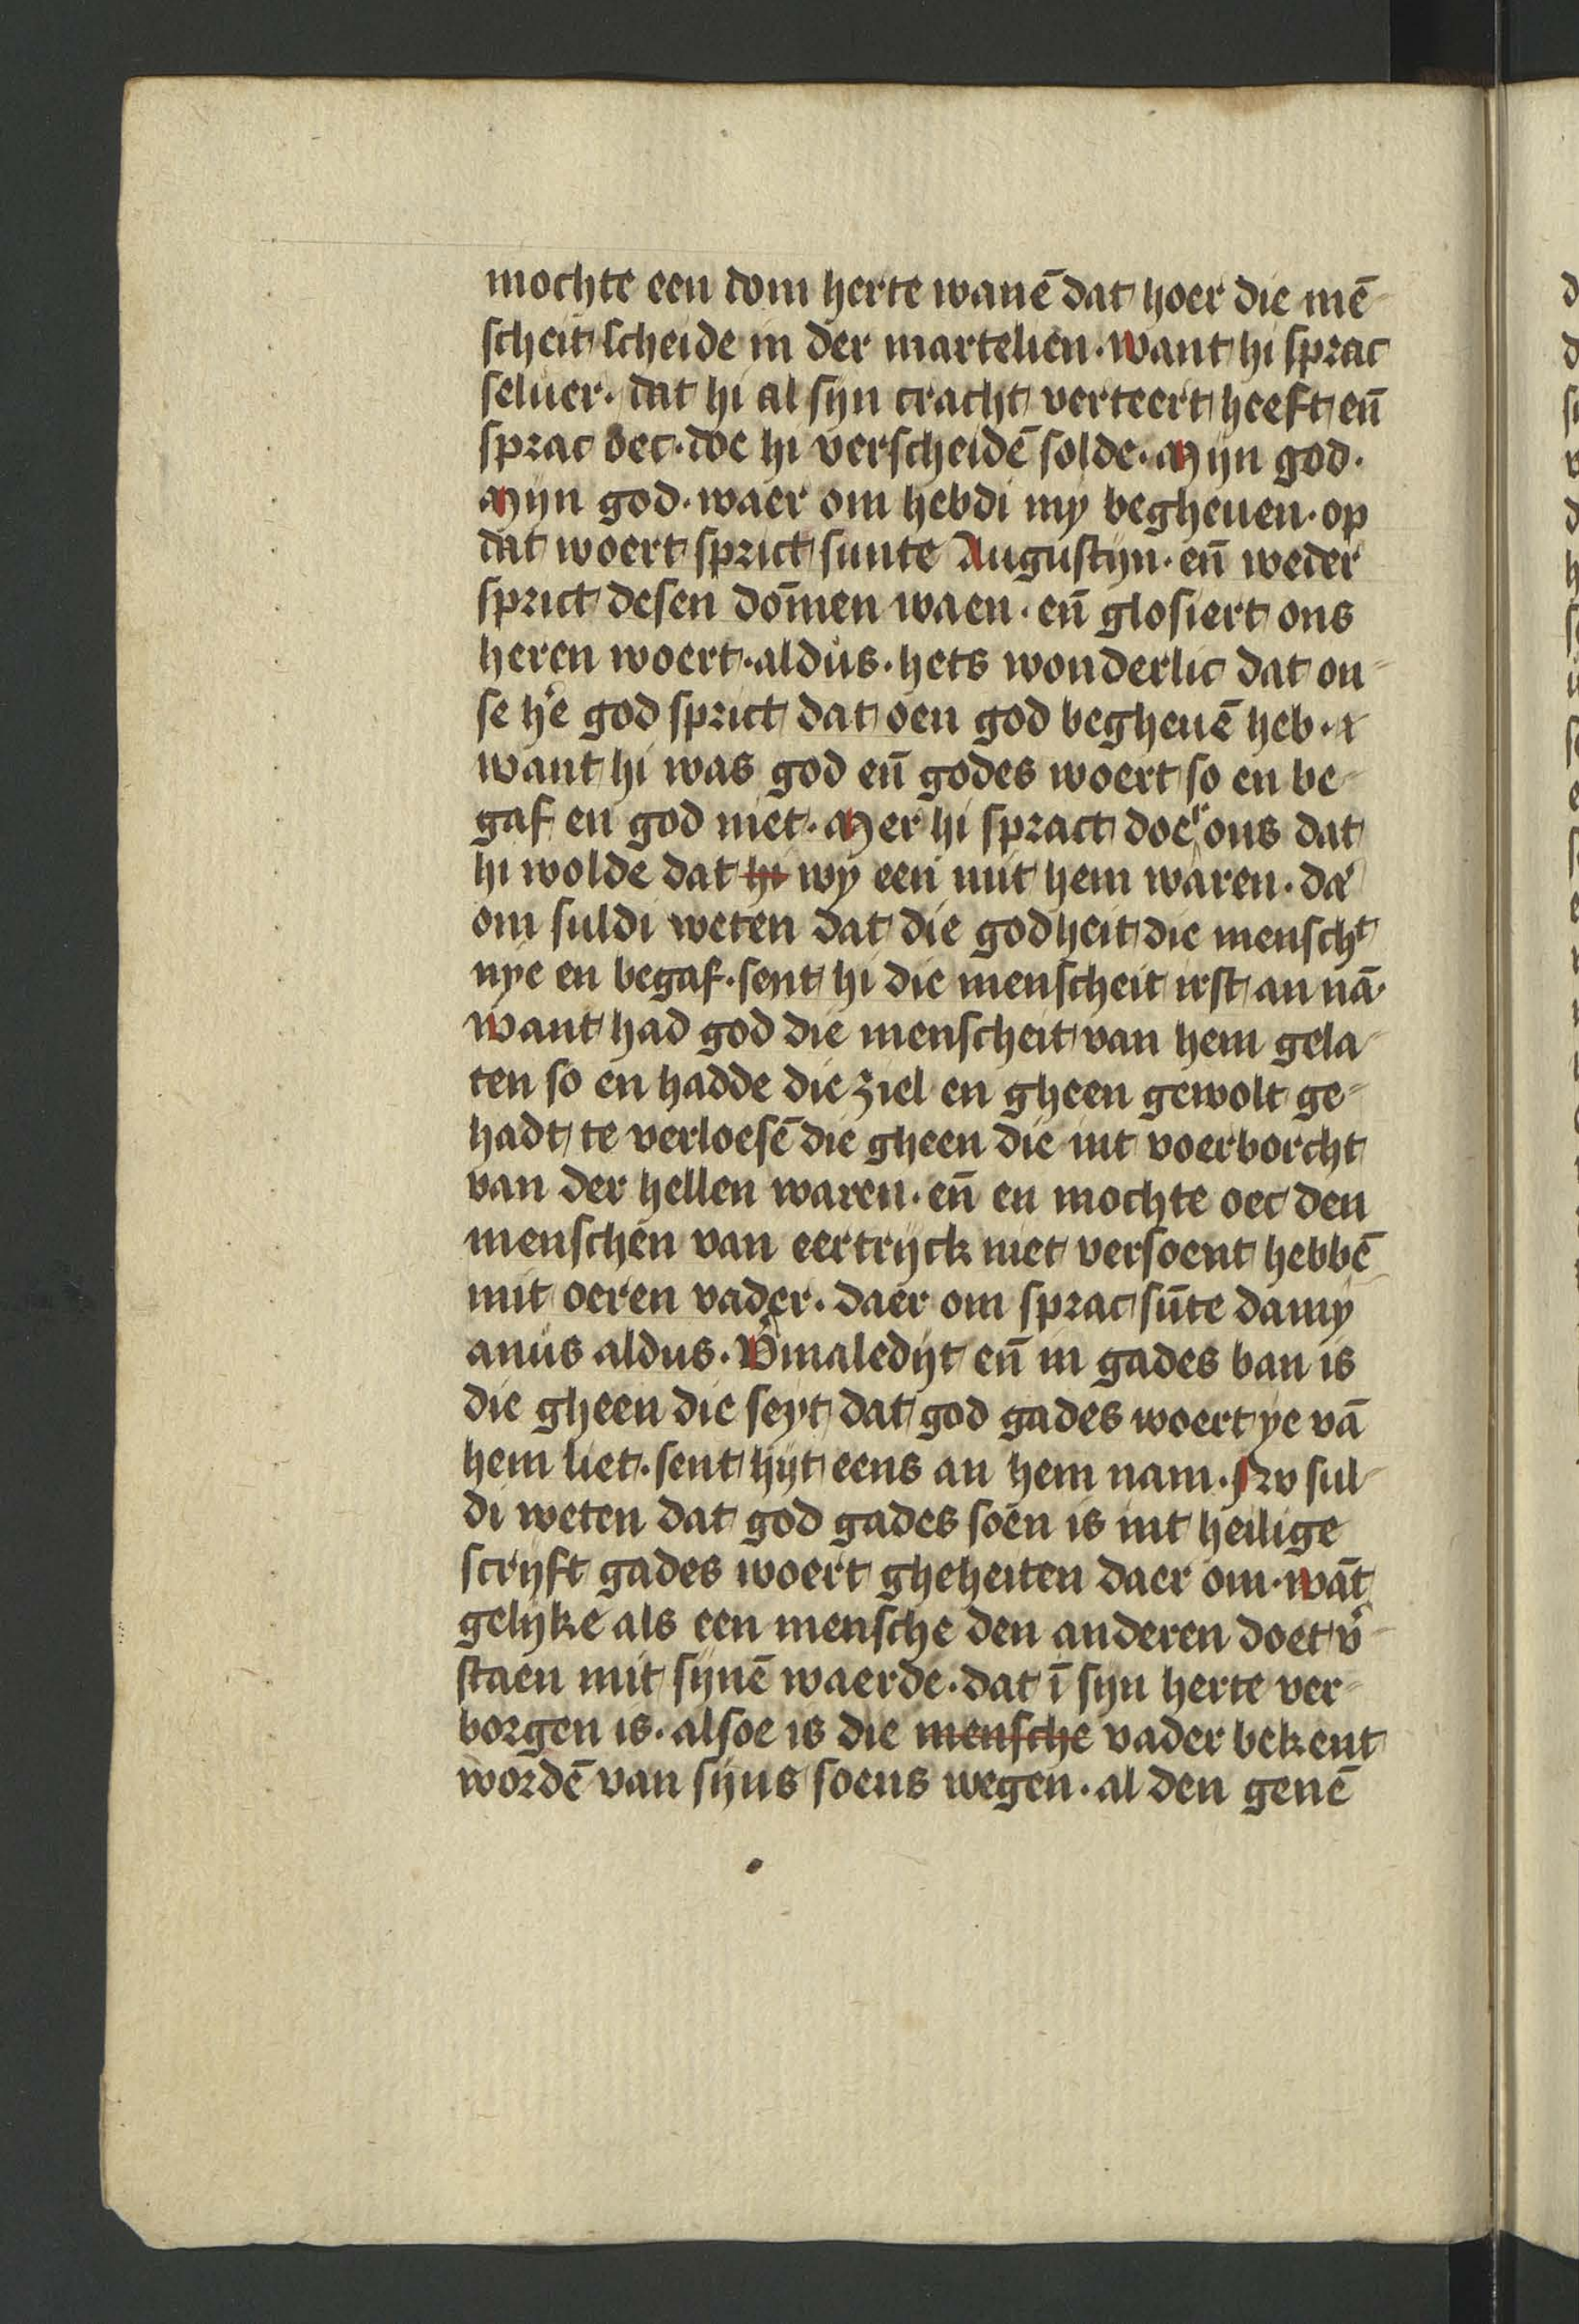 mochte een dom herte wanē dat hoer die mē
scheit scheide in der martelien · want hi sprac
seluer · dat hi al syn cracht verteert heeft eñ
sprac oec · doe hi verscheidē solde · Mijn god ·
Mijn god · waer om hebdi my begheuen · op
dat woert sprict sunte Augustijn · eñ weder
sprict desen dom̄en waen · eñ glosiert ons
heren woert · aldus · hets wonderlic dat on
se h'e god sprict dat oen god begheuē heb ·
want hi was god eñ godes woert so en be
gaf en god niet · Mer hi spract doeʳ ons dat
hi wolde dat hi wy een mit hem waren · da'
om suldi weten dat die godheit die menschᵗ
nye en begaf · sent hi die menscheit irst an nā ·
want had god die menscheit van hem gela
ten so en hadde die ziel en gheen gewolt ge
hadt te verloesē die gheen die int voerborcht
van der hellen waren · eñ en mochte oec den
menschen van eertrijck niet versoent hebbē
mit oeren vader · daer om sprac sūte damy
anus aldus · V'maledijt eñ in gades ban is
die gheen die seyt dat god gades woert ye vā
hem liet · sent hijt eens an hem nam · Nv sul
di weten dat god gades soen is int heilige
scrijft gades woert gheheiten daer om · wāt
gelijke als een mensche den anderen doet v'
staen mit synē waerde · dat ī syn herte ver
borgen is · alsoe is die mensche vader bekent
wordē van sijns soens wegen · al den genē